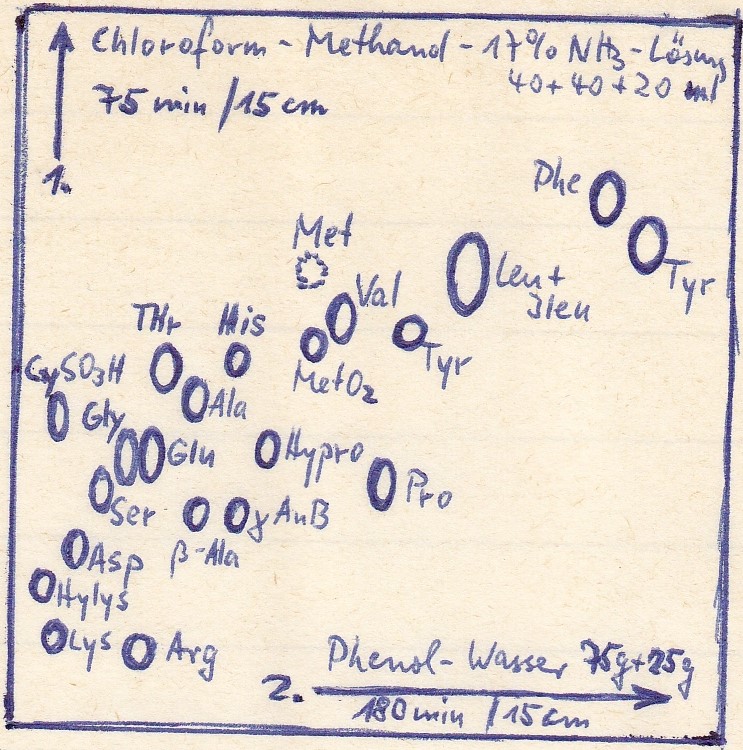 Chloroform - Methanol - 17% NH3 - Lösung
40+40+20 ml
75 min / 15 cm
1.
Phe
Met
Tyr
Leu +
Ileu
Val
THr
His
Tyr
MetO2
CySO3H
Ala
Gly
Gln
Hypro
Pro
Ser
γAuB
β-Ala
Asp
Hylys
Lys
Arg
Phenol-Wasser 75g+25g
2.
180 min / 15 cm